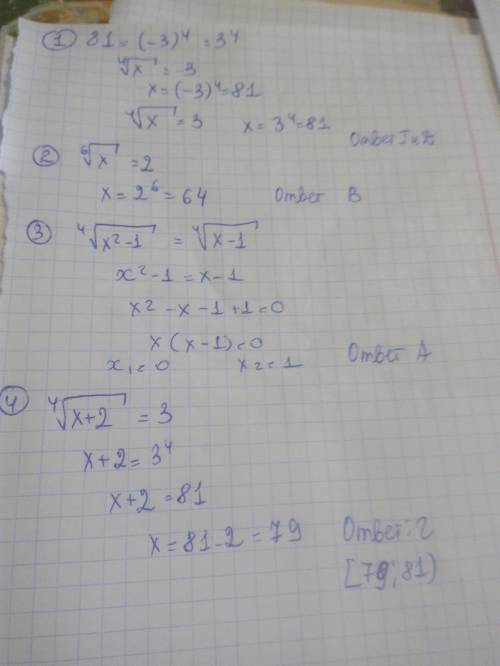 ① 81 = (-3)⁴ = 3⁴
⁴√x = -3
x = (-3)⁴ = 81
⁴√x = 3 x = 3⁴ = 81
Ответ
② ⁶√x = 2
x = 2⁶ = 64 Ответ В
③ ⁴√x²-1 = ⁴√x-1
x²-1 = x-1
x² - x - 1 + 1 = 0
x(x-1) = 0
x₁ = 0 x₂ = 1 Ответ А
④ ⁴√x+2 = 3
x+2 = 3⁴
x+2 = 81
x = 81-2 = 79 Ответ: Г
[79; 81)